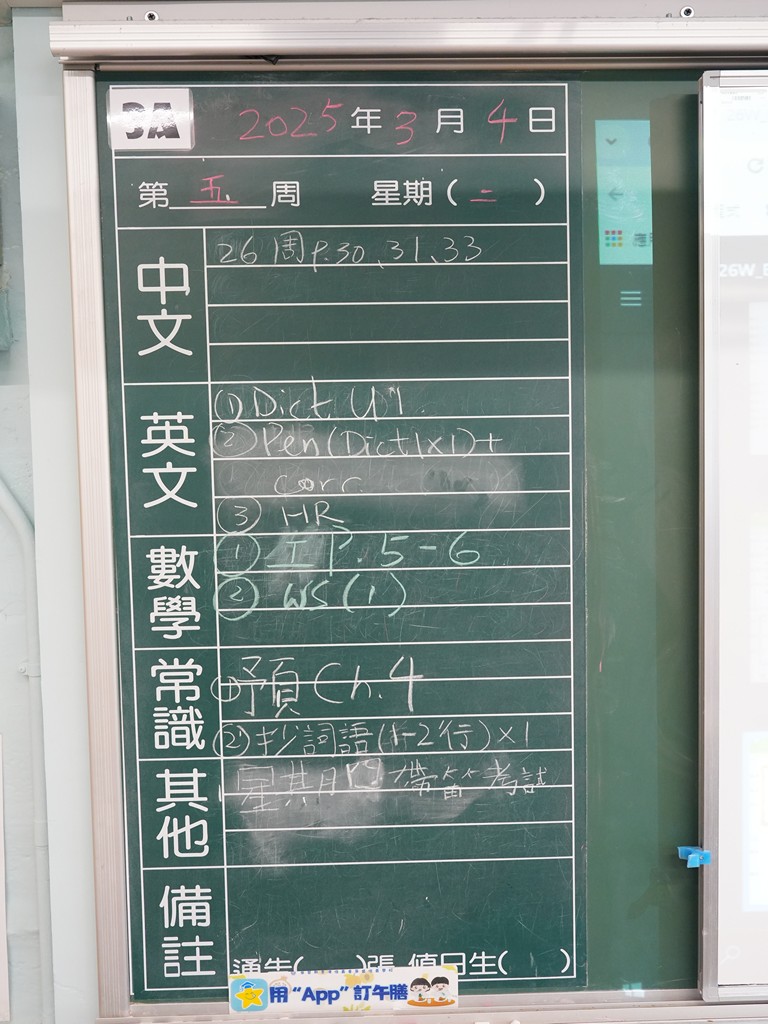 3A 2025年3月4日
第 五 周 星期( 二 )
中文
26周 P.30、31、33
英文
① Dict U1
② Pen (Dict1x1) +
corr.
③ HR
數學
① 工 P.5-6
② WS (1)
常識
① 預 Ch.4
② 抄詞語(1-2行)×1
其他
星期四帶笛考試
備註
通告( )張 值日生( )
用“App”訂午膳
26W_E